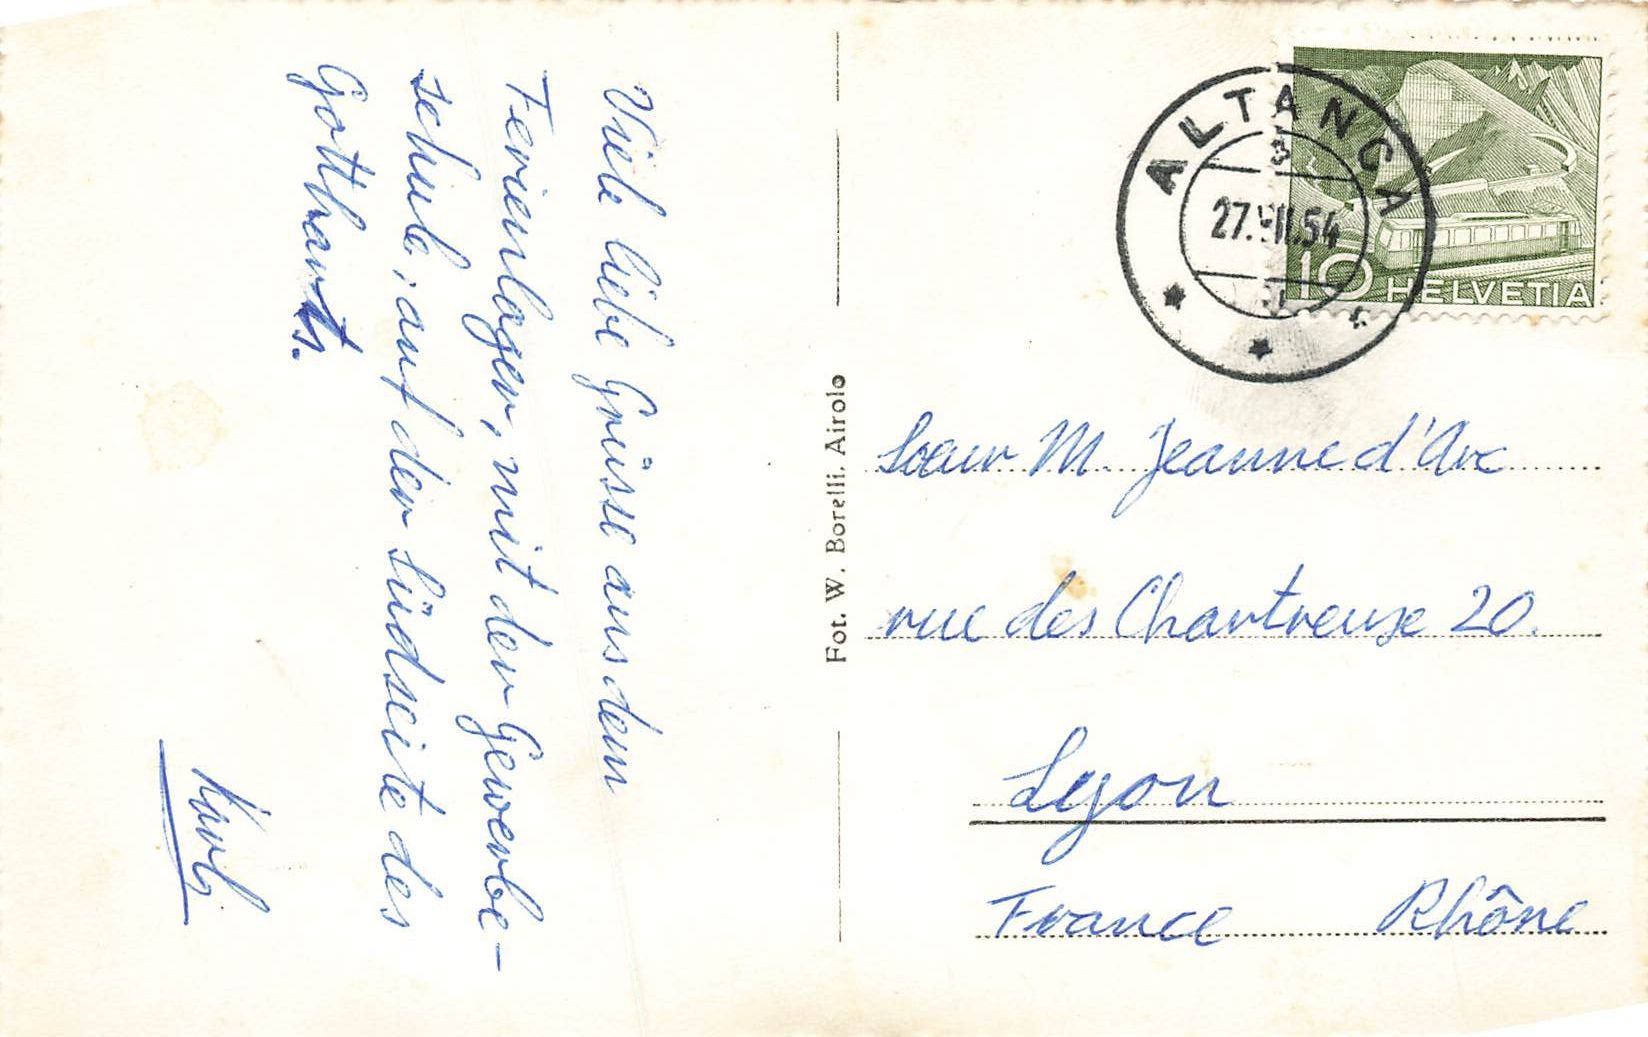 Viele liebe Grüsse aus dem
Ferienlager, mit der Gewerbe-
schule, auf der Südseite des
Gotthards.
Karl
Fot. W. Borelli, Airolo
ALTANCA
27. VII. 54
10 HELVETIA
Soeur M. Jeanne d'Arc
rue des Chartreuse 20.
Lyon
France Rhône